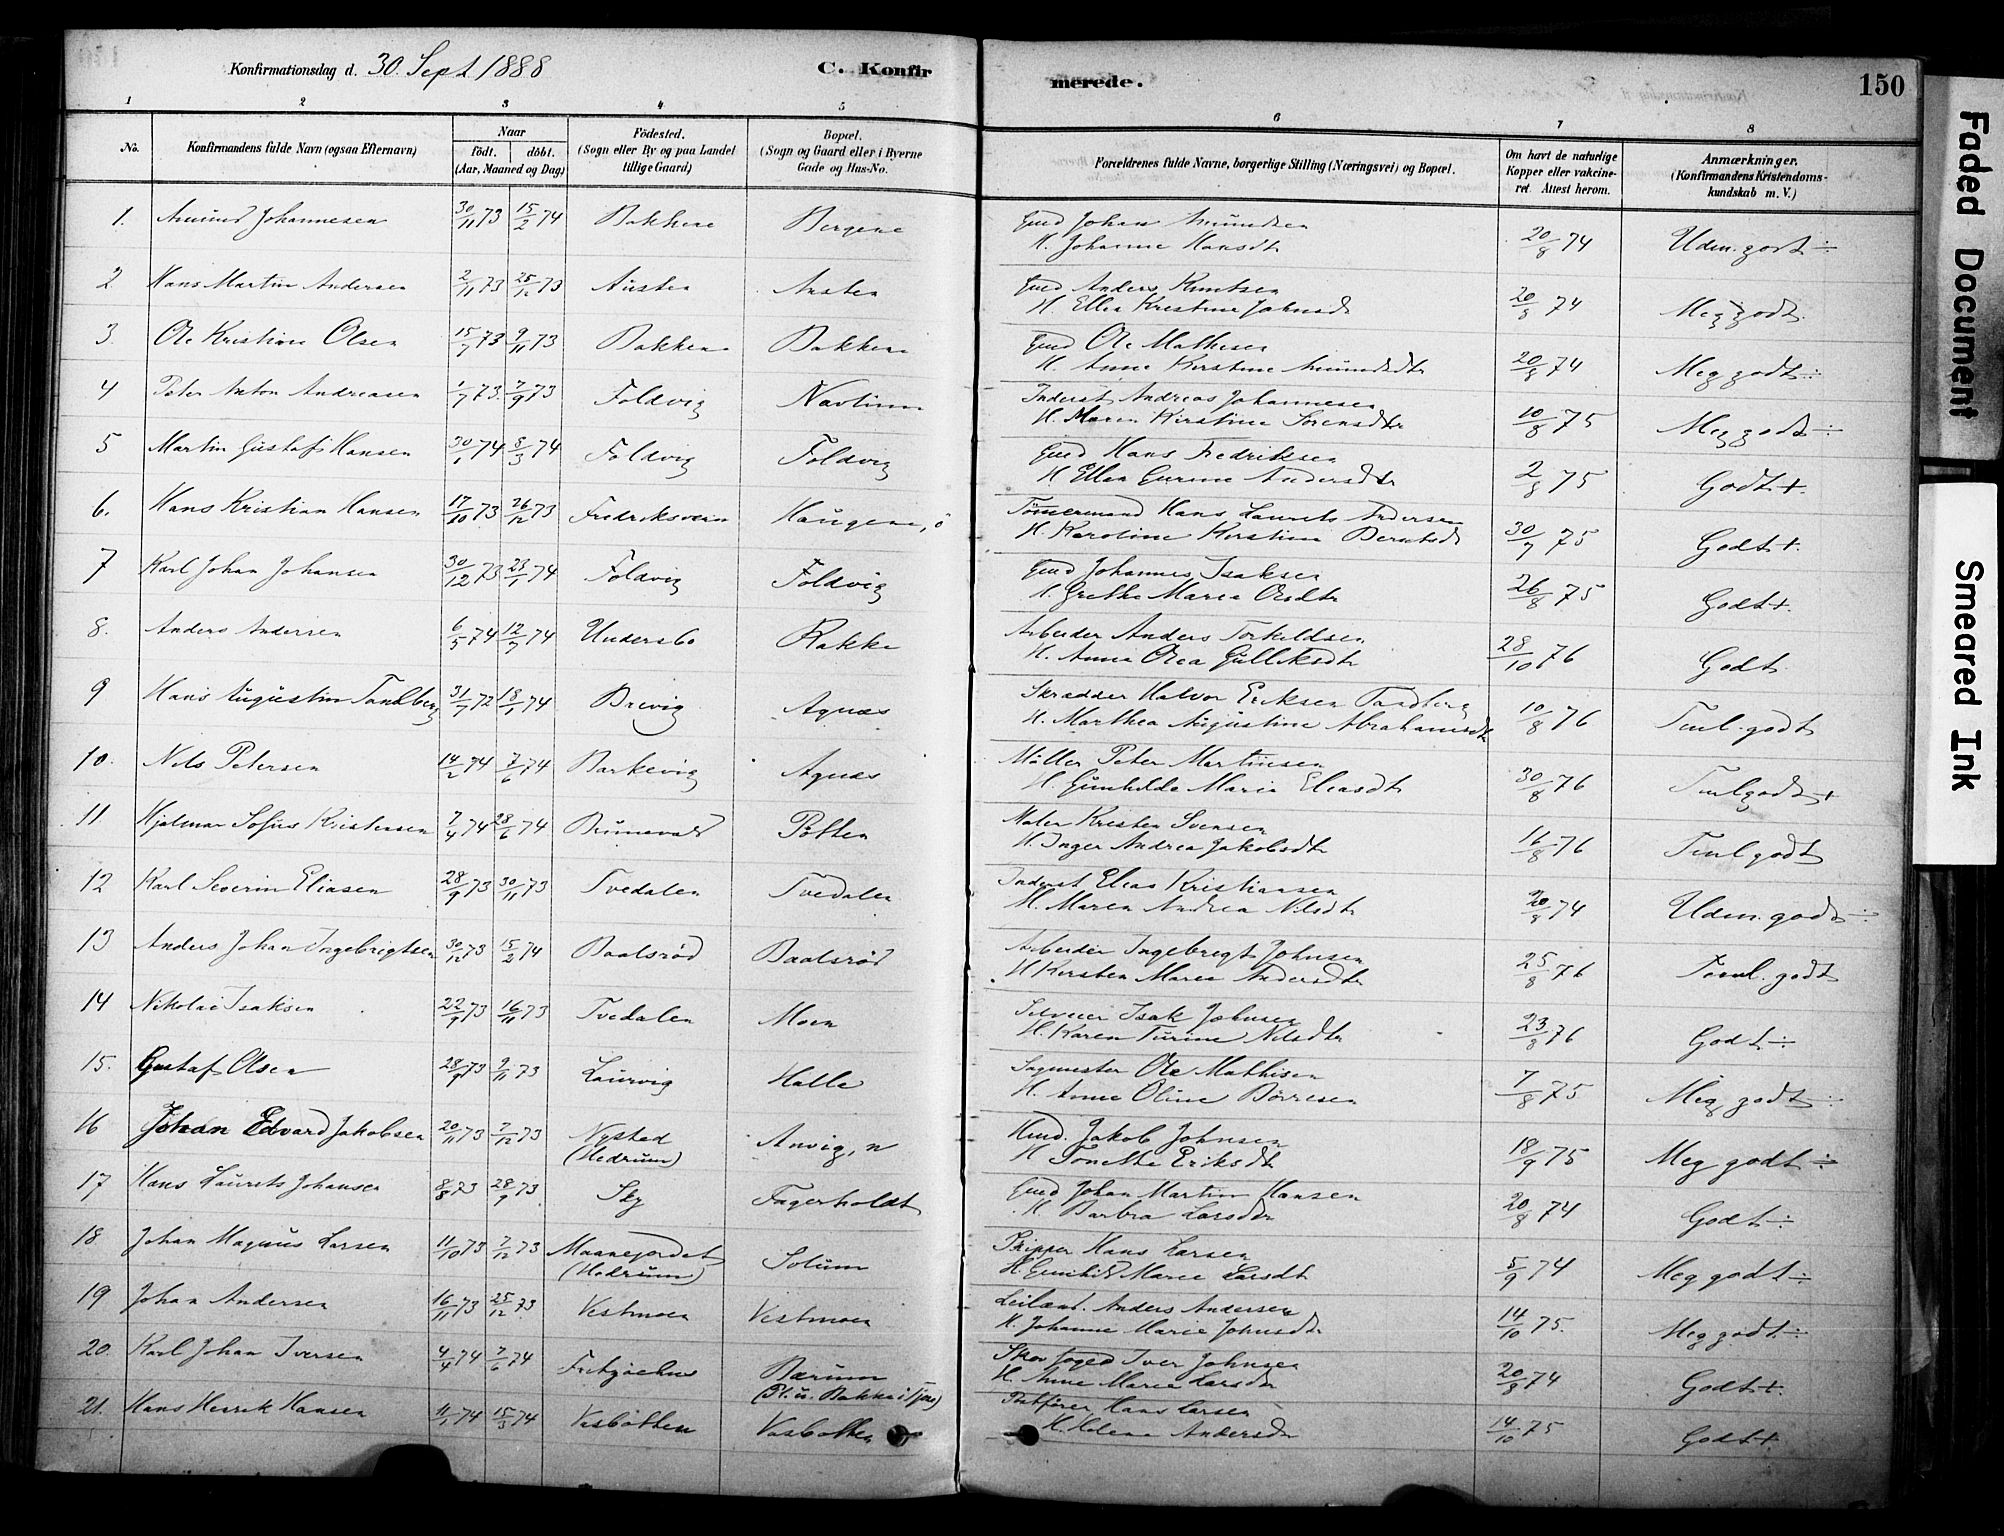 Konfirmationsdag d. 30. Sept 1888 C. Konfirmerede. 150
1 2 3 4 5 6 7 8
No. Konfirmandens fulde Navn (ogsaa Efternavn) Naar födt. döbt. (Aar, Maaned og Dag) Födested. (Sogn eller By og paa Landet tillige Gaard) Bopæl. (Sogn og Gaard eller i Byerne Gade og Hus-No. Forældrenes fulde Navne, borgerlige Stilling (Næringsvei) og Bopæl. Om havt de naturlige Kopper eller vakcineret. Attest herom. Anmærkninger. (Konfirmandens Kristendomskundskab m. V.)
1. Amund Johannesen 30/11 73 15/2 74 Bakkene Bergene Gmd Johan Amundsen
H. Johanne Hansdt 20/8 74 Uden. godt ÷
2 Hans Martin Andersen 2/11 73 25/12 73 Austen Austen Gmd Anders Knutsen
H. Ellen Kristine Johnsdt 20/8 74 Meg godt.
3. Ole Kristian Olsen 15/7 73 9/11 73 Bakken Bakken Gmd Ole Mathisen
H. Anne Kirstine Amundsdtr 20/8 74 Meg godt ÷
4 Peter Anton Andreasen 1/7 73. 7/9 73 Foldvig Inderst Andreas Johannesen
H. Maren Kirstine Sörensdtr 10/8 75 Meg godt ÷
5 Martin Gustaf Hansen 30/1 74 8/3 74 Foldvig Foldvig Gmd Hans Fredriksen
H Ellen Gurine Andersdtr 2/8 75 Godt +.
6. Hans Kristian Hansen 17/10 73 26/12 73 Fredriksvern Haugene, ö Tömmermand Hans Laurits Andersen
H. Karoline Kirstine Berntsdt 30/7 75 Godt +.
7 Karl Johan Johansen 30/12 73 23/1 74 Foldvig Foldvig Gmd Johannes Isaksen
H. Grethe Maria Olsdtr 26/8 75 Godt +.
8. Anders Andersen 6/5 74 12/7 74 Undersbo Rakke Arbeider Anders Torkildsen
H. Anne Olea Gulliksdtr 28/10 76 Godt
9 Hans Augustin Tandberg 31/7 72 18/1 74 Brevig Agnæs Skrædder Halvor Eriksen Tandberg
H. Marthea Augustine Abrahamsdt 10/8 76 Teml. godt
10. Nils Petersen 14/2 74 7/6 74 Barkevig Agnæs Möller Peter Martinsen
H. Gunhilde Maria Eliasdt 30/8 76 Teml godt +
11 Hjalmar Sofus Kristensen 7/4 74 28/6 74 Brunevald Pötten Maler Kristen Svensen
H. Inger Andrea Jakobsdtr 16/8 76 Teml godt
12 Karl Severin Eliasen 28/9 73 30/11 73 Tvedalen Tvedalen Inderst Elias Kristiansen
H. Maren Andrea Nilsdtr 20/8 74 Uden. godt ÷
13 Anders Johan Ingebrigtsen 30/12 73 15/2 74 Baalsröd Baalsröd Arbeider Ingebregt Johnsen
H Kirsten Marie Andersdtr 25/8 76 Teml. godt
14 Nikolai Isaksen 22/9 73 16/11 73 Tvedalen Moen Isak Johnsen
H. Karen Turine Nilsdtr 23/8 76 Godt ÷
15. Gustaf Olsen 28/9 73 9/11 73 Laurvig Halle Sagmester Ole Mathisen
H. Anne Oline Börresen 7/8 75 Meg godt ÷
16 Johan Edvard Jakobsen 20/11 73 7/12 73 Nystad (Hedrum) Anvig, n Hmd. Jakob Johnsen
H Tonette Eriksdt 18/9 75 Meg godt ÷
17 Hans Laurits Johansen 8/8 73 28/9 73 Sky Fagerholdt Gmd Johan Martin Hansen
H Barbra Larsdtr 20/8 74 Godt ÷
18. Johan Magnus Larsen 11/10 73 7/12 73 Maanejordet (Hedrum) Solum Skipper Hans Larsen
H. Gunhild Marie Larsdt 5/9 74 Meg godt ÷
19 Johan Andersen 16/11 73 25/12 73 Vestmoen Vestmoen Leilænd. Anders Andersen
H. Johanne Marie Johnsdtr 14/10 75. Meg godt ÷
20. Karl Johan Iversen 4/4 74 7/6 74 Fritzöehus Bærum
(Pl. u. Bakke i Tjøse) Skovfoged Iver Johnsen
H. Anne Marie Larsdtr 20/8 74 Godt +.
21. Hans Henrik Hansen 11/1 74 15/3 74 Vasbotten Vasbotten Hans Larsen
H. Helene Andersdtr 14/10 75 Godt +
Faded Document
Smeared Ink